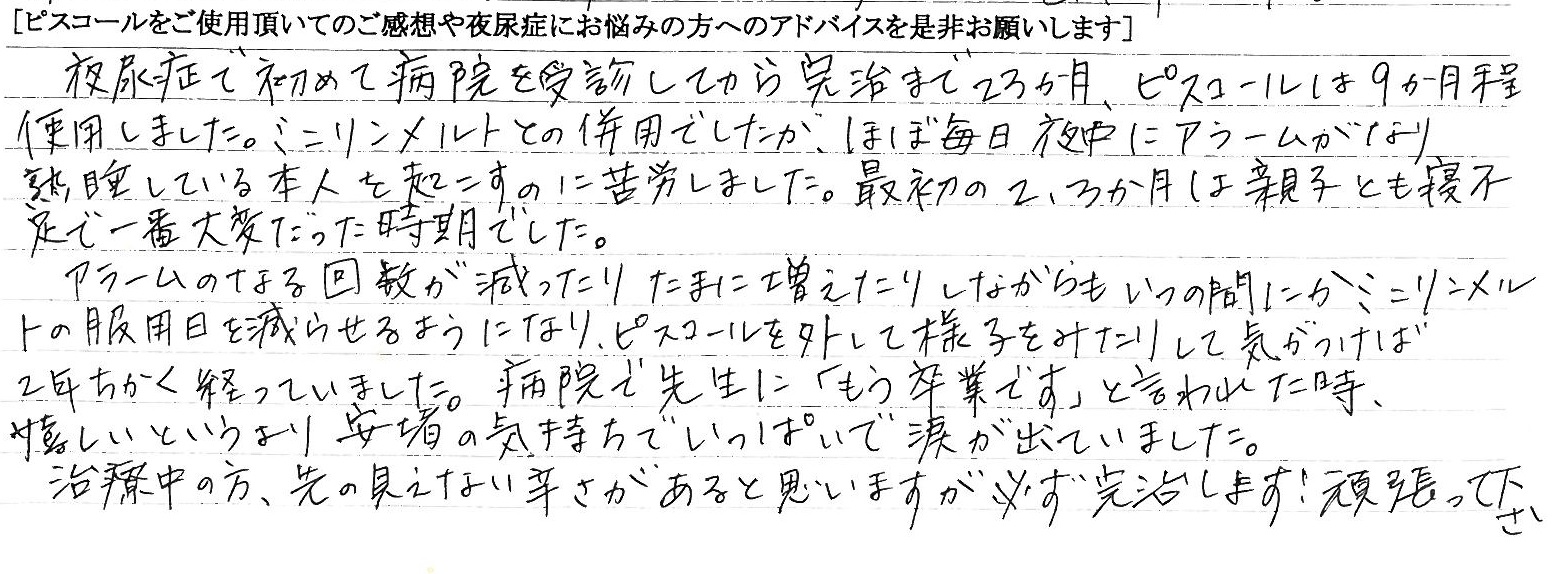 [ピスコールをご使用頂いてのご感想や夜尿症にお悩みの方へのアドバイスを是非お願いします]
夜尿症で初めて病院を受診してから完治まで23か月、ピスコールは9か月程
使用しました。ミニリンメルトとの併用でしたが、ほぼ毎日夜中にアラームがなり
熟睡している本人を起こすのに苦労しました。最初の2、3か月は親子とも寝不
足で一番大変だった時期でした。
アラームのなる回数が減ったりたまに増えたりしながらもいつの間にかミニリンメル
トの服用日を減らせるようになり、ピスコールを外して様子をみたりして気がつけば
2年ちかく経っていました。病院で先生に「もう卒業です」と言われた時、
嬉しいというより安堵の気持ちでいっぱいで涙が出ていました。
治療中の方、先の見えない辛さがあると思いますが必ず完治します!頑張って下
さい